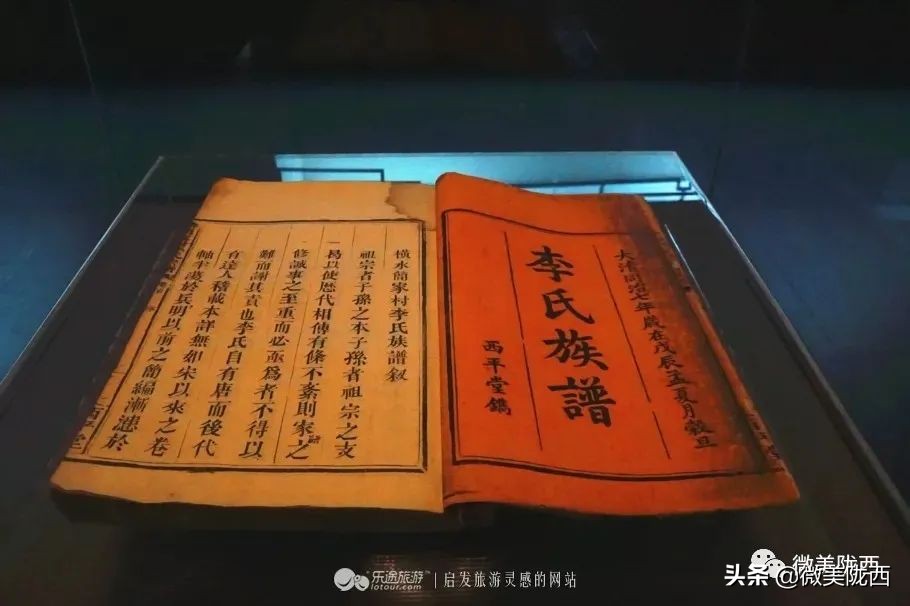 大清同治七年歲在戊辰孟夏月穀旦
李氏族譜
西平堂鐫
橫水簡家村李氏族譜叙
祖宗者子孫之本子孫者祖宗之支
曷以使歴代相傳有條不紊則家之
修誠事之至重而必亟為者不得以
難而諉其責也李氏自有唐而後代
有達人稽載本詳無如宋以來之卷
軸半於兵明以前之簡編漸於
乐途旅游
lotour.com
启发旅游灵感的网站
微美陇西
头条 @微美陇西